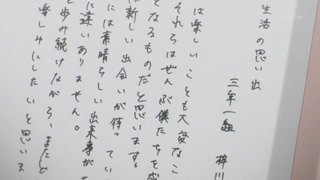 生活の思い出
三年一組　梓川
は楽しいことも大変なこ
それらはぜんぶ僕たちを成
となるものだと思います。
は新しい出会いが待ってい
には素晴らしい出来事が
に違いありません。
と歩み続けながら、またど
楽しみにしたいと思いま